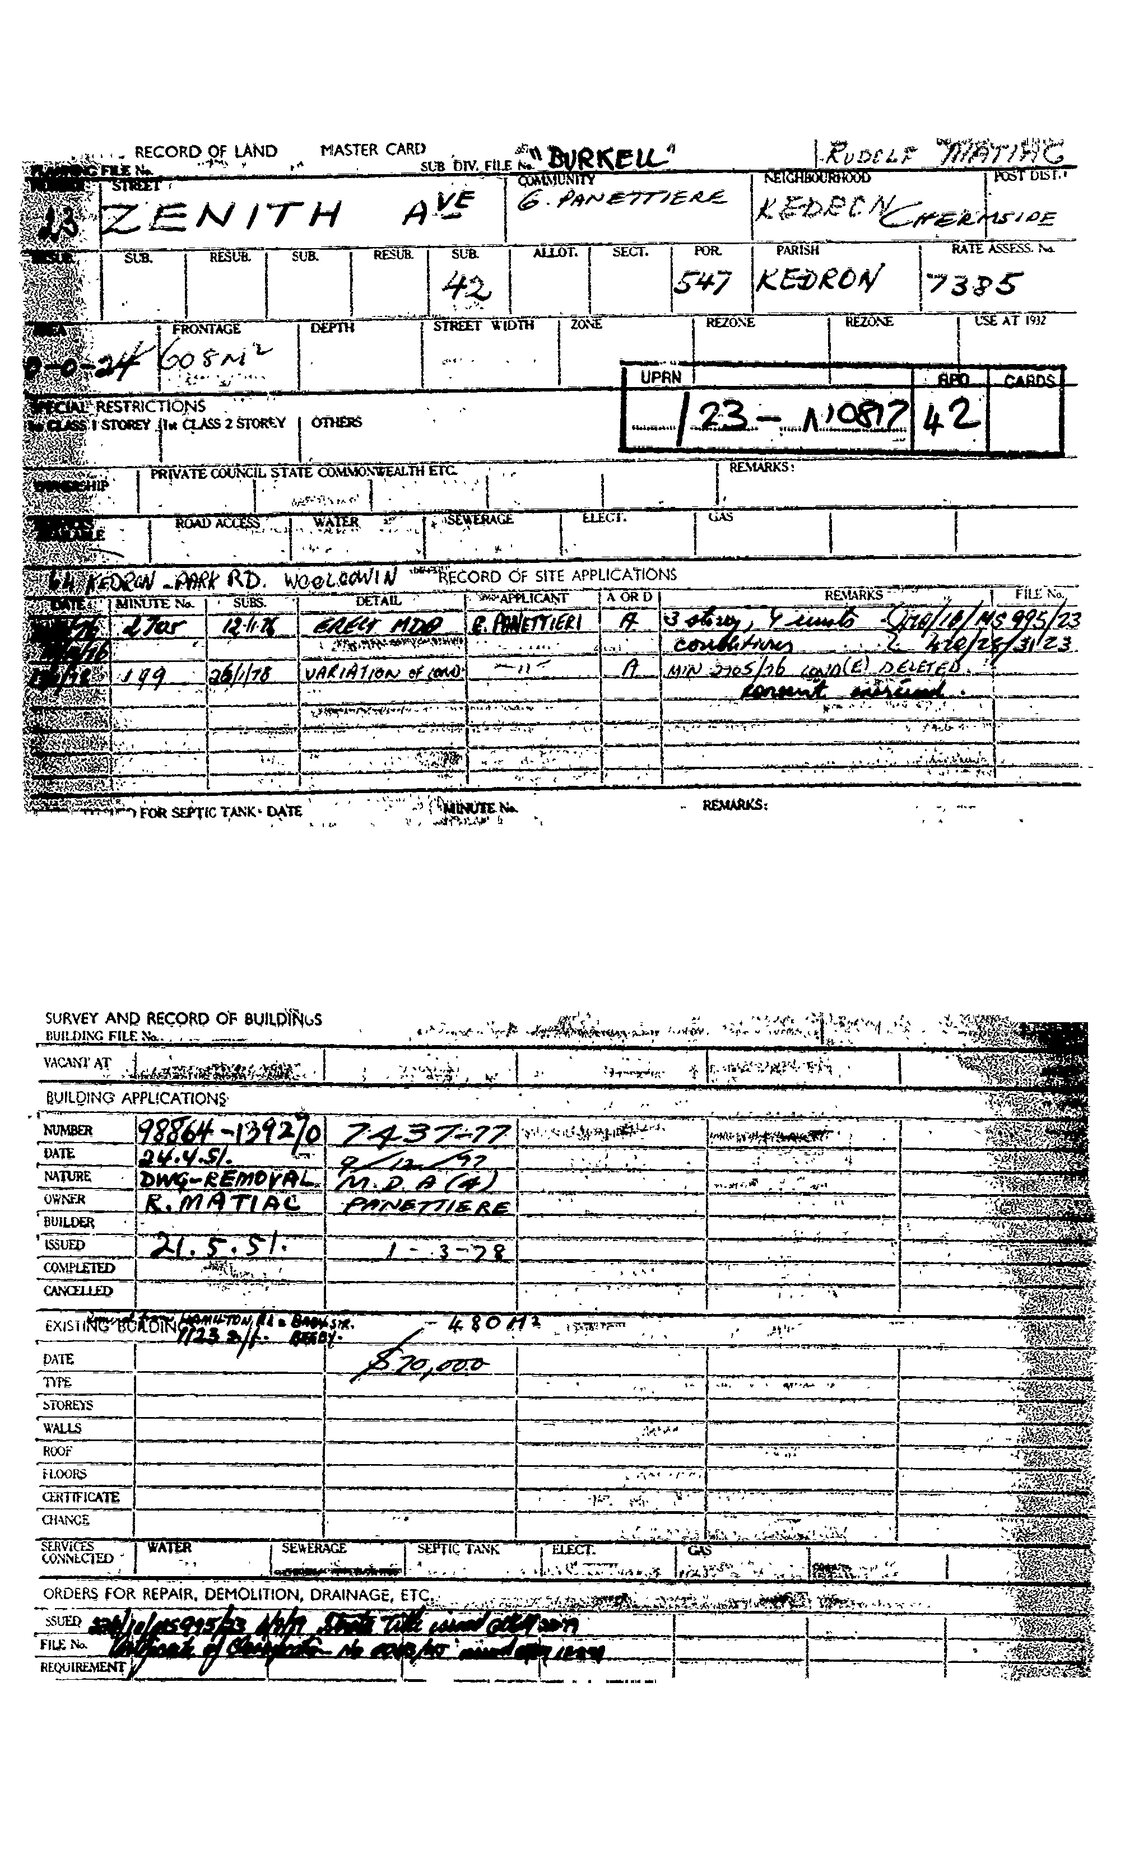 RECORD OF LAND MASTER CARD SUB DIV. FILE No. "BURKELL" RUDOLF MATIAC
PLANNING FILE No.
NUMBER STREET COMMUNITY NEIGHBOURHOOD POST DIST.
23 ZENITH AVE G. PANETTIERE KEDRON CHERMSIDE
RESUB. SUB. RESUB. SUB. RESUB. SUB. ALLOT. SECT. POR. PARISH RATE ASSESS. No.
42 547 KEDRON 7385
AREA FRONTAGE DEPTH STREET WIDTH ZONE REZONE REZONE USE AT 1932
0-0-24 608 M2
UPRN RPD CARDS
/23- N0817 42
SPECIAL RESTRICTIONS
1st CLASS 1 STOREY 1st CLASS 2 STOREY OTHERS
OWNERSHIP PRIVATE COUNCIL STATE COMMONWEALTH ETC. REMARKS:
SERVICES AVAILABLE ROAD ACCESS WATER SEWERAGE ELECT. GAS
64 KEDRON-PARK RD. WOOLOOWIN RECORD OF SITE APPLICATIONS
DATE MINUTE No. SUBS. DETAIL APPLICANT A OR D REMARKS FILE No.
2705 12.11.76 ERECT MDB PANETTIERI A 3 storey, 4 units MS 995/23
conditions 420/28/31/23
199 26/1/78 VARIATION OF COND -"- A MIN 2705/76 COND(E) DELETED.
consent
FOR SEPTIC TANK - DATE MINUTE No. REMARKS:
SURVEY AND RECORD OF BUILDINGS
BUILDING FILE No.
VACANT AT
BUILDING APPLICATIONS
NUMBER 98864-13920 7437-77
DATE 24.4.51. 9/12/77
NATURE DWG-REMOVAL. M.D.A (4)
OWNER R. MATIAC PANETTIERE
BUILDER
ISSUED 21.5.51. 1-3-78
COMPLETED
CANCELLED
EXISTING BUILDING HAMILTON Rd - 480 M2
1123
DATE $70,000
TYPE
STOREYS
WALLS
ROOF
FLOORS
CERTIFICATE
CHANGE
SERVICES CONNECTED WATER SEWERAGE SEPTIC TANK ELECT. GAS
ORDERS FOR REPAIR, DEMOLITION, DRAINAGE, ETC.
ISSUED MS995/23 Strata Title issued
FILE No. Certificate of Classification No issued
REQUIREMENT